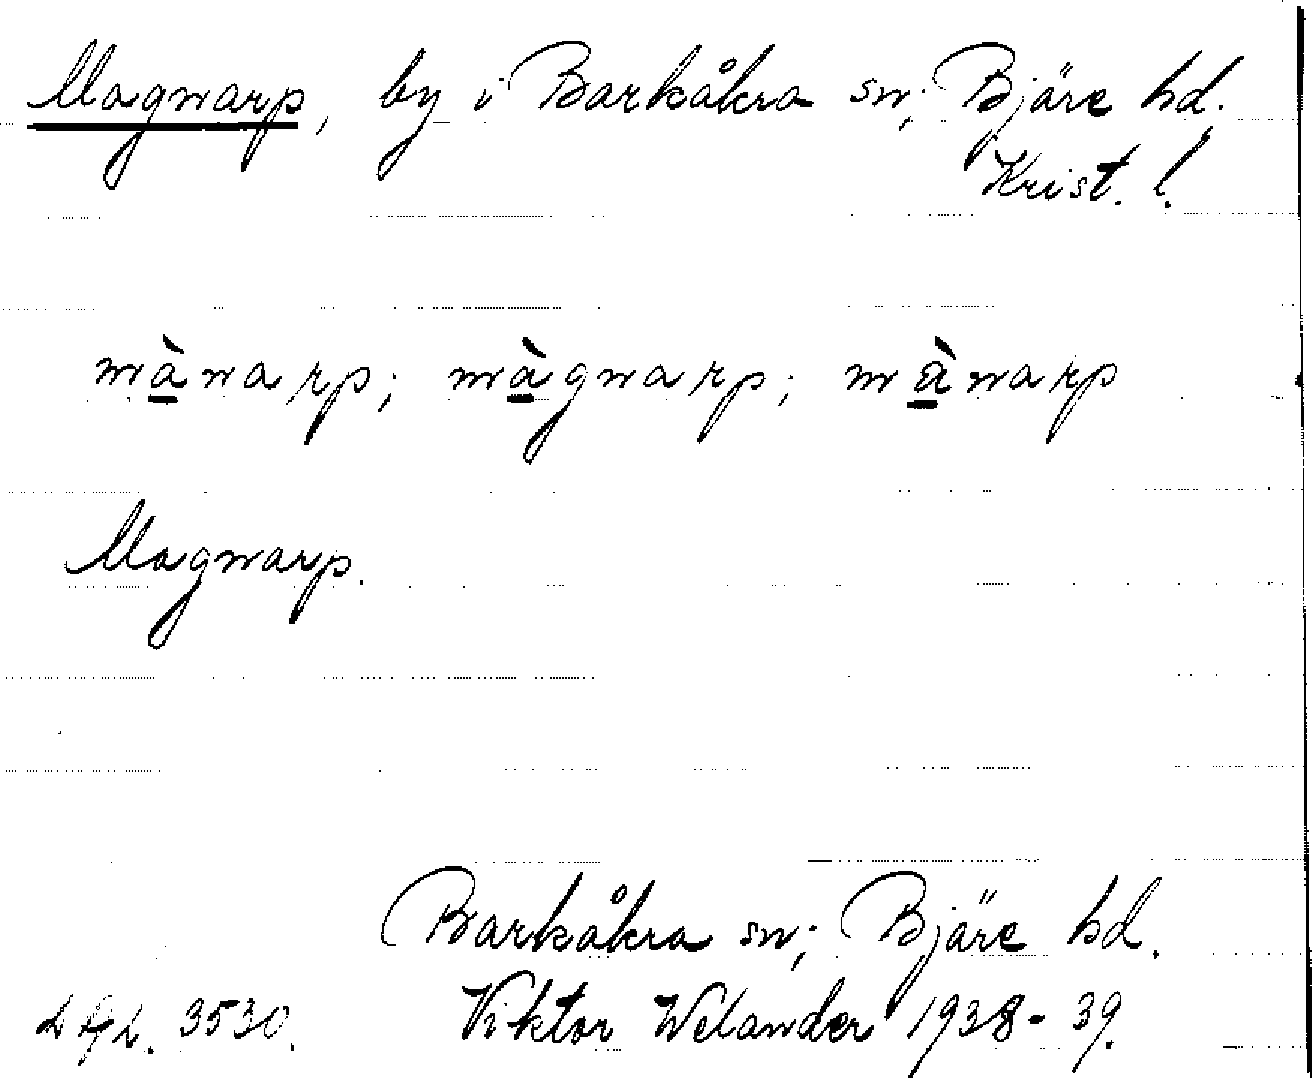 Magnarp, by i Barkåkra sn; Bjäre hd.
Krist. l.
mànarp; màgnarp; mànarp
Magnarp.
Barkåkra sn; Bjäre hd.
3530. Viktor Welander 1938-39.